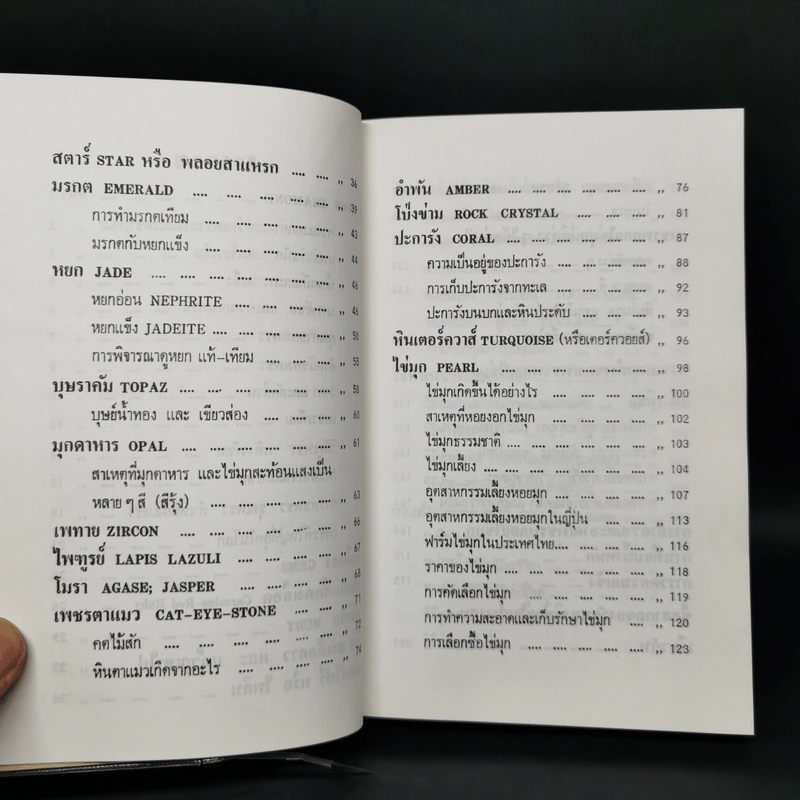 สตาร์ STAR หรือ พลอยสาแหรก .... .... ,, 36
มรกต EMERALD .... .... .... .... ,, 39
การทำมรกตเทียม .... .... .... ,, 43
มรกตกับหยกแข็ง .... .... .... ,, 44
หยก JADE .... .... .... .... .... ,, 46
หยกอ่อน NEPHRITE .... .... .... ,, 46
หยกแข็ง JADEITE .... .... .... .... ,, 50
การพิจารณาดูหยก แท้-เทียม .... .... ,, 55
บุษราคัม TOPAZ .... .... .... .... ,, 58
บุษย์น้ำทอง และ เขียวส่อง .... .... ,, 60
มุกดาหาร OPAL .... .... .... .... ,, 61
สาเหตุที่มุกดาหาร และไข่มุกสะท้อนแสงเป็น
หลาย ๆ สี (สีรุ้ง) .... .... .... ,, 63
เพทาย ZIRCON .... .... .... .... ,, 66
ไพฑูรย์ LAPIS LAZULI .... .... .... ,, 67
โมรา AGASE; JASPER .... .... .... ,, 68
เพชรตาแมว CAT-EYE-STONE .... .... ,, 71
คตไม้สัก .... .... .... .... .... ,, 72
หินตาแมวเกิดจากอะไร .... .... .... ,, 74
อำพัน AMBER .... .... .... .... .... ,, 76
โป่งข่าม ROCK CRYSTAL .... .... .... ,, 81
ปะการัง CORAL .... .... .... .... .... ,, 87
ความเป็นอยู่ของปะการัง .... .... .... ,, 88
การเก็บปะการังจากทะเล .... .... .... ,, 92
ปะการังบนบกและหินประดับ .... .... .... ,, 93
หินเตอร์ควาส์ TURQUOISE (หรือเตอร์ควอยส์) ,, 96
ไข่มุก PEARL .... .... .... .... .... ,, 98
ไข่มุกเกิดขึ้นได้อย่างไร .... .... .... ,, 100
สาเหตุที่หอยงอกไข่มุก .... .... .... ,, 102
ไข่มุกธรรมชาติ .... .... .... .... ,, 103
ไข่มุกเลี้ยง .... .... .... .... .... ,, 104
อุตสาหกรรมเลี้ยงหอยมุก .... .... .... ,, 107
อุตสาหกรรมเลี้ยงหอยมุกในญี่ปุ่น .... .... ,, 113
ฟาร์มไข่มุกในประเทศไทย.... .... .... ,, 116
ราคาของไข่มุก .... .... .... .... ,, 118
การคัดเลือกไข่มุก .... .... .... .... ,, 119
การทำความสะอาดและเก็บรักษาไข่มุก .... ,, 120
การเลือกซื้อไข่มุก .... .... .... .... ,, 123